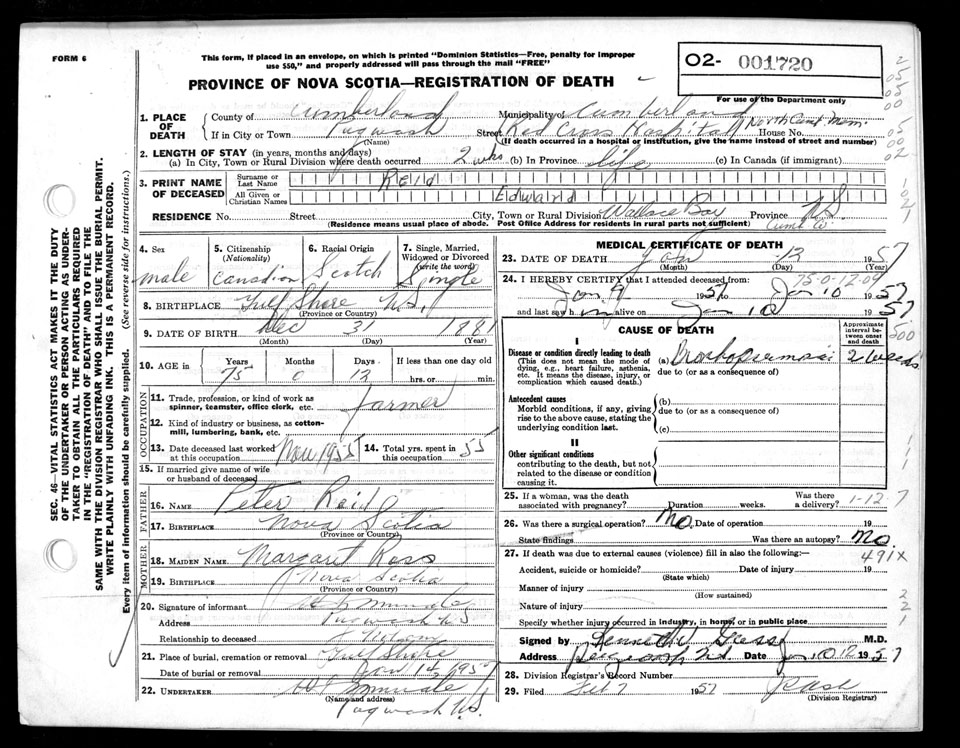 FORM 6
This form, if placed in an envelope, on which is printed "Dominion Statistics—Free, penalty for improper
use $50," and properly addressed will pass through the mail "FREE"
O2- 001720
PROVINCE OF NOVA SCOTIA—REGISTRATION OF DEATH
For use of the Department only
1. PLACE OF DEATH County of Cumberland Municipality of Cumberland
If in City or Town Pugwash Street Red Cross Hospital North Cumb Mem. House No.
(Name) (If death occurred in a hospital or institution, give the name instead of street and number)
2. LENGTH OF STAY (in years, months and days)
(a) In City, Town or Rural Division where death occurred 2 wks (b) In Province life (c) In Canada (if immigrant)
3. PRINT NAME OF DECEASED Surname or Last Name Reid
All Given or Christian Names Edward
RESIDENCE No. Street City, Town or Rural Division Wallace Bay Province N.S.
(Residence means usual place of abode. Post Office Address for residents in rural parts not sufficient) Cumb Co.
4. Sex 5. Citizenship (Nationality) 6. Racial Origin 7. Single, Married, Widowed or Divorced (write the word)
male Canadian Scotch Single
8. BIRTHPLACE Gulf Shore N.S.
(Province or Country)
9. DATE OF BIRTH Dec 31 1881
(Month) (Day) (Year)
10. AGE in Years Months Days If less than one day old
75 0 12 hrs. or min.
OCCUPATION
11. Trade, profession, or kind of work as spinner, teamster, office clerk, etc. farmer
12. Kind of industry or business, as cotton-mill, lumbering, bank, etc.
13. Date deceased last worked at this occupation Nov 1955 14. Total yrs. spent in this occupation 55
15. If married give name of wife or husband of deceased
FATHER
16. NAME Peter Reid
17. BIRTHPLACE Nova Scotia
(Province or Country)
MOTHER
18. MAIDEN NAME Margaret Ross
19. BIRTHPLACE Nova Scotia
(Province or Country)
20. Signature of informant
Address Pugwash N.S.
Relationship to deceased
21. Place of burial, cremation or removal Gulf Shore
Date of burial or removal Jan 1957
22. UNDERTAKER
(Name and address)
Pugwash N.S.
MEDICAL CERTIFICATE OF DEATH
23. DATE OF DEATH Jan 12 1957
(Month) (Day) (Year)
75-0-12-09
24. I HEREBY CERTIFY that I attended deceased from:
Jan 9 1957 to Jan 10 1957
and last saw him alive on Jan 10 1957
CAUSE OF DEATH
Approximate interval between onset and death
I
Disease or condition directly leading to death (a) 2 weeks
(This does not mean the mode of dying, e.g., heart failure, asthenia, etc. It means the disease, injury, or complication which caused death.)
due to (or as a consequence of)
Antecedent causes
Morbid conditions, if any, giving rise to the above cause, stating the underlying condition last.
(b)
due to (or as a consequence of)
(c)
II
Other significant conditions
contributing to the death, but not related to the disease or condition causing it.
25. If a woman, was the death associated with pregnancy? Duration weeks. Was there a delivery?
1-12 7
26. Was there a surgical operation? No. Date of operation 19
State findings Was there an autopsy? No.
27. If death was due to external causes (violence) fill in also the following:—
491X
Accident, suicide or homicide? Date of injury 19
(State which)
Manner of injury
(How sustained)
Nature of injury
Specify whether injury occurred in industry, in home, or in public place
Signed by M.D.
Address Date Jan 12 1957
28. Division Registrar's Record Number
29. Filed Feb 7 1957
(Division Registrar)
SEC. 46—VITAL STATISTICS ACT MAKES IT THE DUTY
OF THE UNDERTAKER OR PERSON ACTING AS UNDER-
TAKER TO OBTAIN ALL THE PARTICULARS REQUIRED
IN THE "REGISTRATION OF DEATH" AND TO FILE THE
SAME WITH THE DIVISION REGISTRAR WHO SHALL ISSUE THE BURIAL PERMIT.
WRITE PLAINLY WITH UNFADING INK. THIS IS A PERMANENT RECORD.
Every item of information should be carefully supplied. (See reverse side for instructions.)